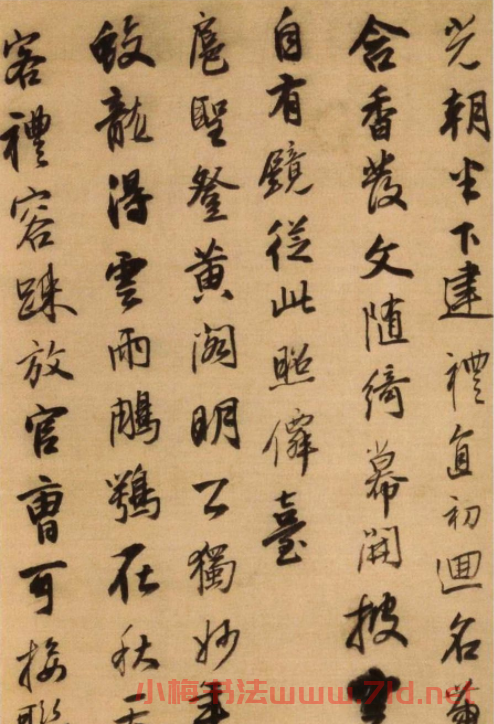 光朝半下建禮直初迴名
含香發文随綺幕開披
自有鏡從此照僊臺
扈聖登黃閣明公獨妙年
蛟龍得雲雨鵰鶚在秋天
客禮容踈放官曹可接聯
小梅书法www.7ld.net